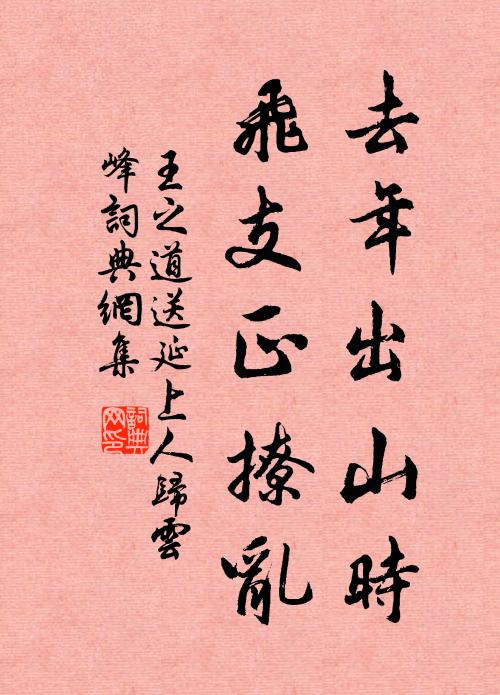 去年出山時
飛支正撩亂
王之道送延上人歸雲
峰詞典網集
詞典網印